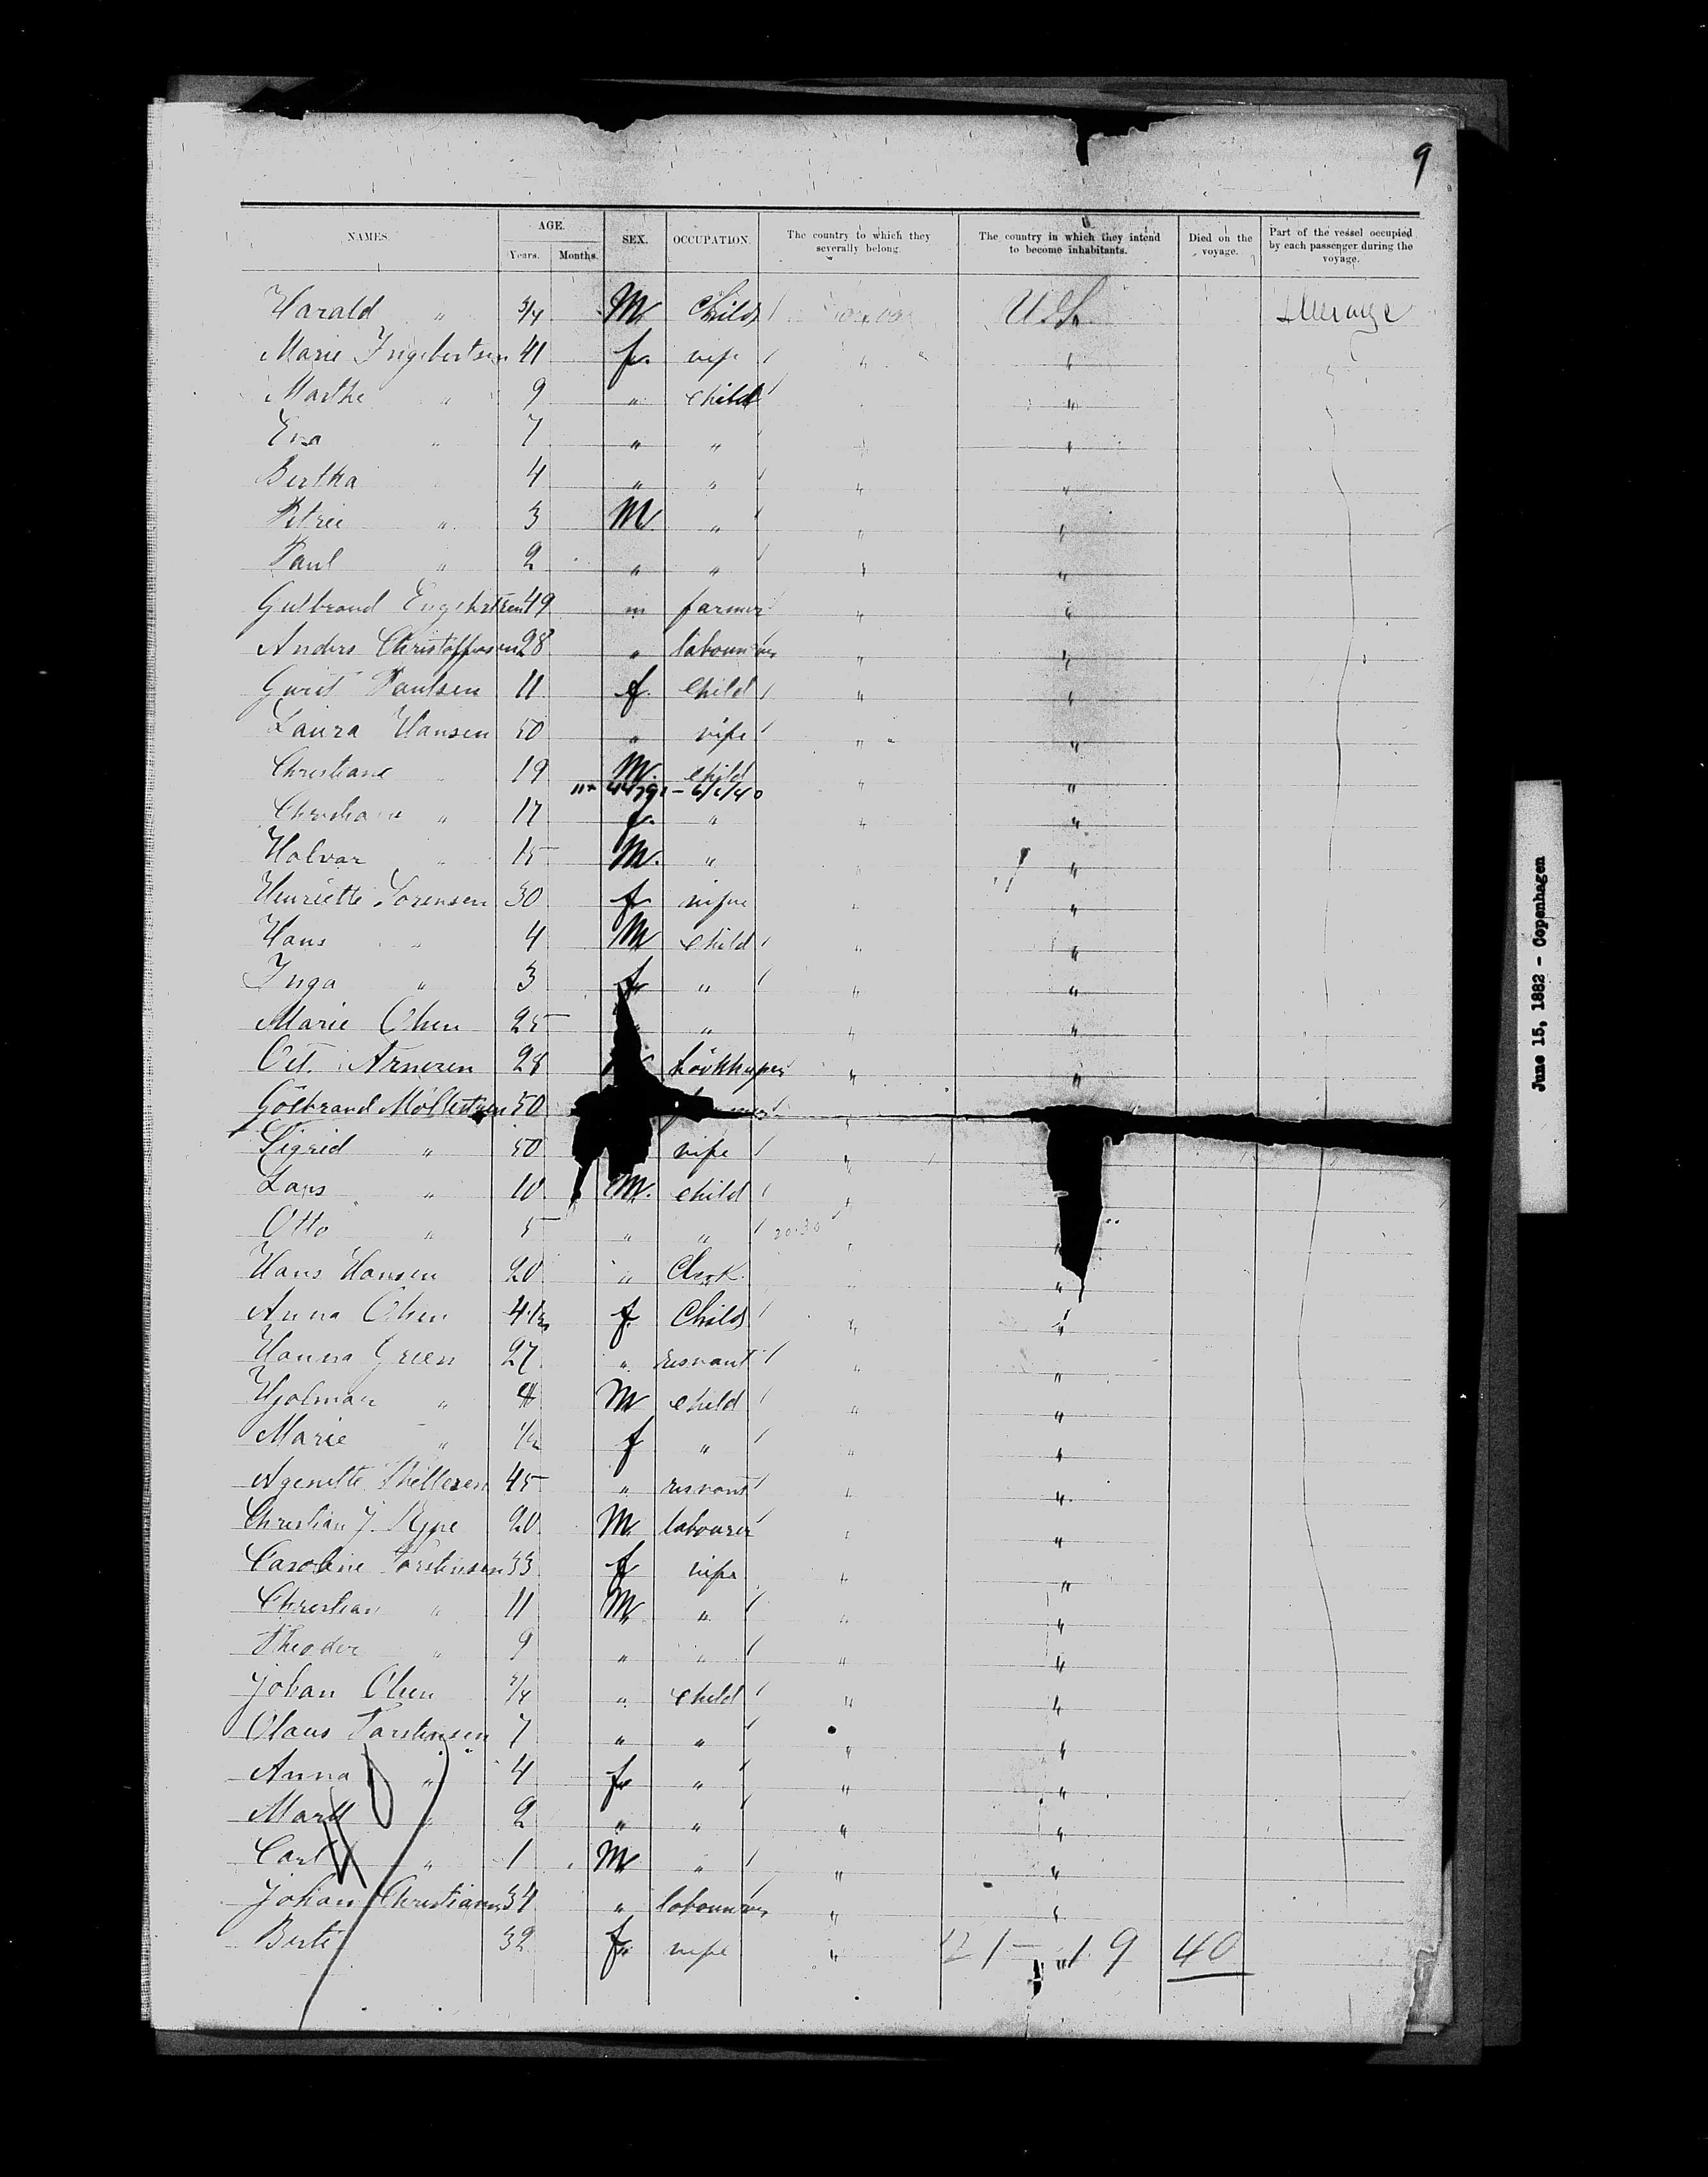 9
NAMES. AGE. SEX. OCCUPATION. The country to which they severally belong. The country in which they intend to become inhabitants. Died on the voyage. Part of the vessel occupied by each passenger during the voyage.
Years. Months.
Harald " 3/4 M Child U.S. Steerage
Marie Ingebertsen 41 f. wife " "
Marthe " 9 " child "
Eva " 7 " " " "
Bertha 4 " " " "
Petree " 3 M " " "
Paul " 2 " " " "
Gulbrand Engebretsen 49 m farmer " "
Anders Christoffersen 28 " labourer " "
Gurit Paulsen 11 f. child " "
Laura Hansen 50 " wife " "
Christiane 19 M. child " "
44791 - 6/6/40
Christiane " 17 f. " " "
Halvar " 15 M. " "
Henriette Sorensen 30 f. wife " "
Hans " 4 M child " "
Inga " 3 f " " "
Marie Olsen 25 " " "
Oct. Arnesen 28 " "
50
Sigrid " 50 wife "
Lars " 10 M. child "
Otto " 5 " " 20-30 "
Hans Hansen 20 " Clerk " "
Anna Olsen 4 1/2 f. Child " "
Hanna Green 27 " servant " "
Hjalmar " 4 M child " "
Marie " 1/2 f " " "
45 " servant " "
Christian J. 20 M labourer "
Caroline Torstensen 33 f wife " "
Christian " 11 M " " "
Theodor " 9 " " " "
Johan Olsen 3/4 " child " "
Olaus Torstensen 7 " " " "
Anna " 4 f. " " "
2 " " " "
Carl " 1 M " " "
Johan Christiansen 34 " labourer " "
32 f. wife " 21 - 19 40
June 15, 1882 - Copenhagen